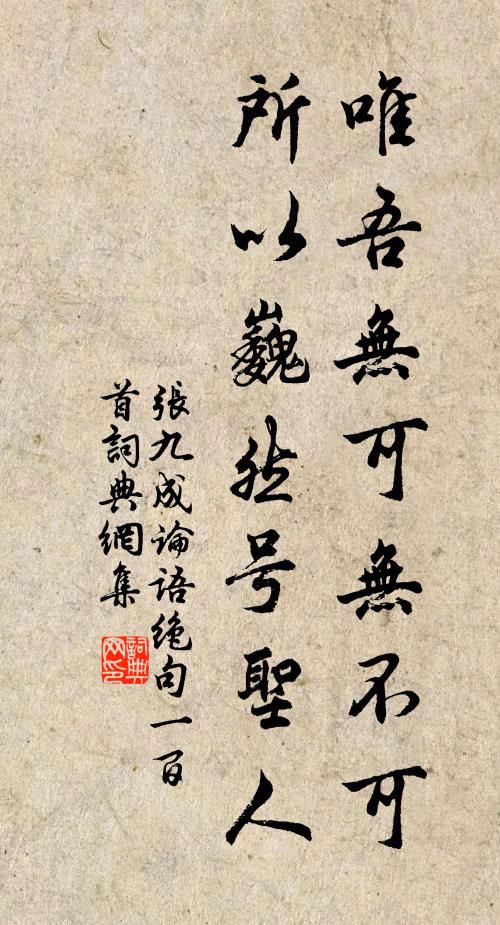 唯吾無可無不可
所以巍然号聖人
張九成論語绝句一百
首詞典網集
詞典
网印